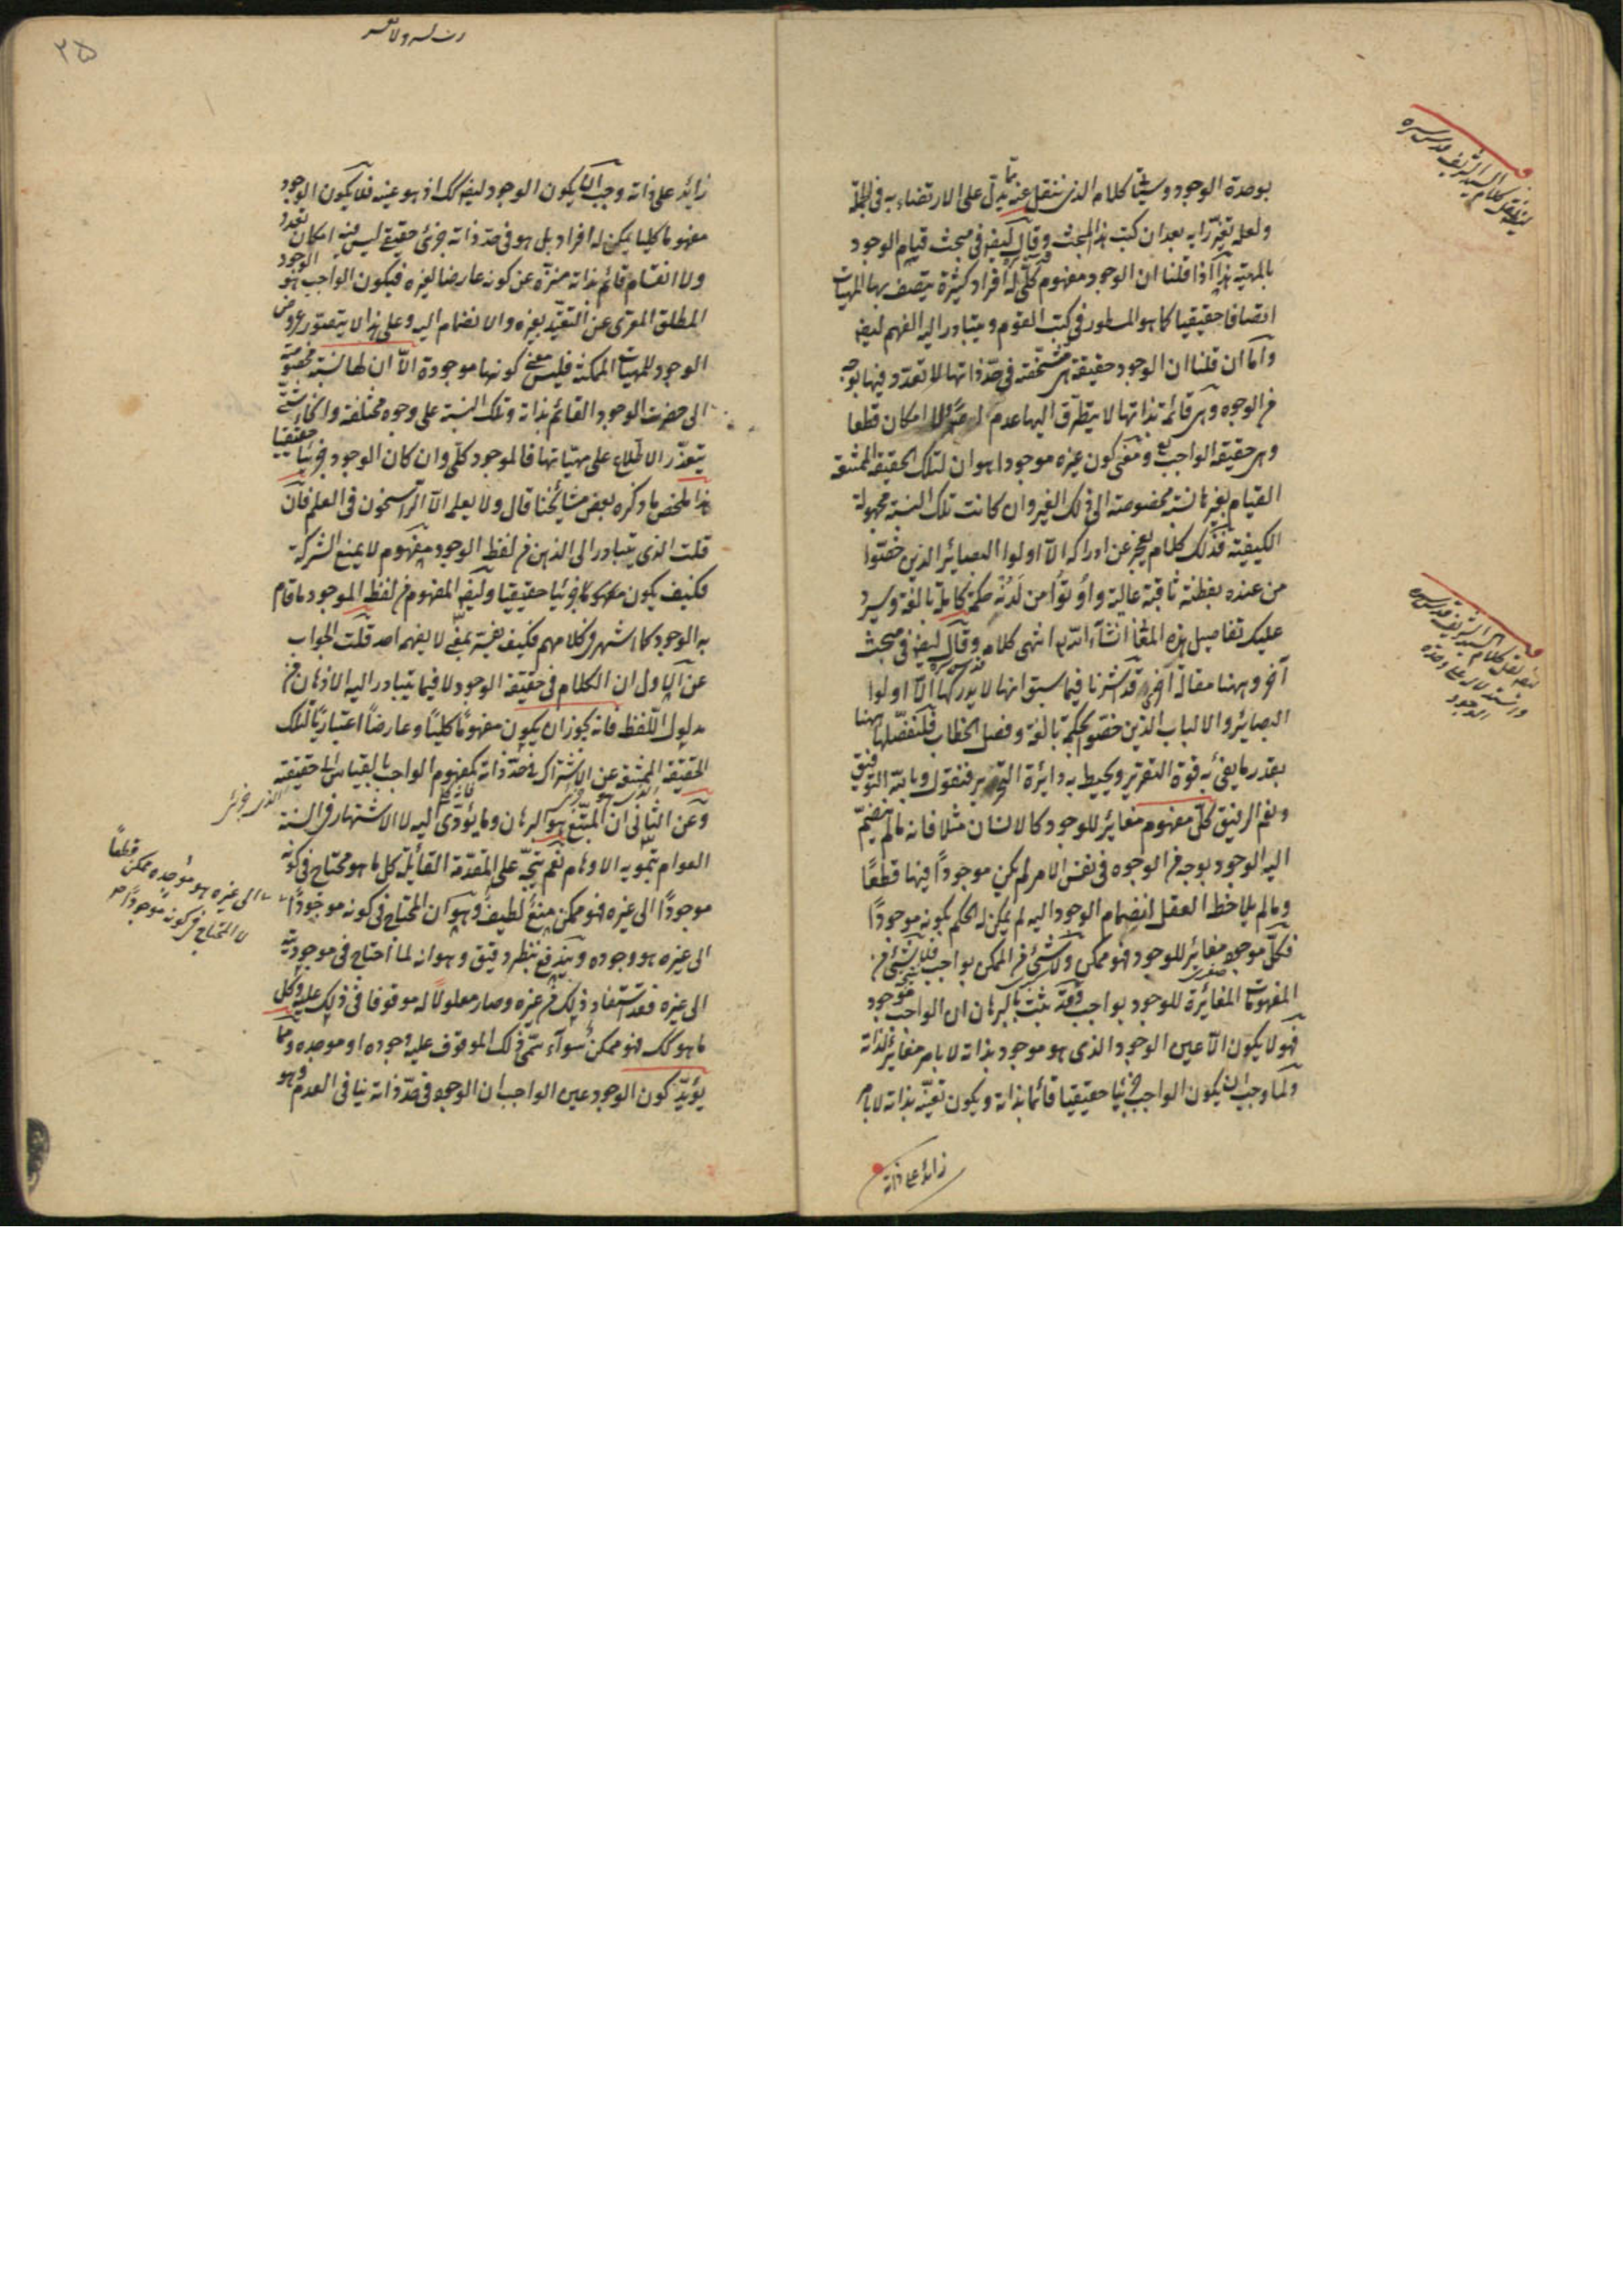 بوحدة الوجود وسيما كلام الذى ننقل عنه يدل على الارتضاء به فى الجملة
ولعله تغير رأيه بعد ان كتب هذا المبحث وقال ايضا فى مبحث قيام الوجود
بالمهية هذا اذا قلنا ان الوجود مفهوم كلى له افراد كثيرة يتصف بها المهيات
اتصافا حقيقيا كما هو المسطور فى كتب القوم ويتبادر اليه الفهم ايضا
واما ان قلنا ان الوجود حقيقة مشخصة فى حد ذاتها لا تعدد فيها بوجه
من الوجوه وهى قائمة بذاتها لا يتطرق اليها عدم ولا امكان قطعا
وهى حقيقة الواجب تع ومعنى كون غيره موجودا هو ان لتلك الحقيقة الممتنعة
القيام بغيرها نسبة مخصوصة الى ذلك الغير وان كانت تلك النسبة مجهولة
الكيفية فذلك كلام يعجز عن ادراكه الا اولوا البصائر الذين خصوا
من عنده بفطنة ثاقبة عالية واوتوا من لدنه حكمة كاملة بالغة وسيرد
عليك تفاصيل هذه المعانى انشاء الله تع انتهى كلامه وقال ايضا فى مبحث
آخر وههنا مقالة اخرى قد اشرنا فيما سبق انها لا يدركها الا اولوا
البصائر والالباب الذين خصوا بحكمة بالغة وفصل الخطاب فلنفصلها ههنا
بقدر ما يفى به قوة التقرير ويحيط به دائرة التحرير فنقول وبالله التوفيق
ونعم الرفيق كل مفهوم مغاير للوجود كالانسان مثلا فانه مالم ينضم
اليه الوجود بوجه من الوجوه فى نفس الامر لم يكن موجودا فيها قطعا
ومالم يلاحظ العقل انضمام الوجود اليه لم يمكن له الحكم بكونه موجودا
فكل موجود مغاير للوجود فهو ممكن ولا شئ من الممكن بواجب فلا شئ من
المفهومات المغايرة للوجود بواجب وقد ثبت بالبرهان ان الواجب موجود
فهو لا يكون الا عين الوجود الذى هو موجود بذاته لا بامر مغاير لذاته
ولما وجب ان يكون الواجب جزئيا حقيقيا قائما بذاته ويكون تعينه بذاته لا بامر
زائد على ذاته
٢٥
زائد على ذاته وجب ان يكون الوجود ايضا كك اذ هو عينه فلا يكون الوجود
مفهوما كليا يمكن له افراد بل هو فى حد ذاته جزئى حقيقى ليس فيه امكان تعدد
ولا انقسام قائم بذاته منزه عن كونه عارضا لغيره فيكون الواجب هو الوجود
المطلق المعرى عن التقيد بغيره والانضمام اليه وعلى هذا لا يتصور عروض
الوجود للمهيات الممكنة فليس معنى كونها موجودة الا ان لها نسبة مخصوصة
الى حضرت الوجود القائم بذاته وتلك النسبة على وجوه مختلفة وانحاء شتى
يتعذر الاطلاع على مهياتها فالموجود كلى وان كان الوجود جزئيا حقيقيا
هذا ملخص ما ذكره بعض مشائخنا قال ولا يعلمه الا الراسخون فى العلم فان
قلت الذى يتبادر الى الذهن من لفظ الوجود مفهوم لا يمنع الشركة
فكيف يكون جزئيا حقيقيا وايضا المفهوم من لفظ الموجود ما قام
به الوجود كما اشتهر فى كلامهم فكيف يفسر بمعنى لا يفهمه احد قلت الجواب
عن الاول ان الكلام فى حقيقة الوجود لا فيما يتبادر اليه الاذهان من
مدلول اللفظ فانه يجوز ان يكون مفهوما كليا وعارضا اعتباريا لتلك
الحقيقة الممتنعة عن الاشتراك فى حد ذاته كمفهوم الواجب بالقياس الى حقيقته
وعن الثانى ان المتبع هو البرهان وما يؤدى اليه لا الاشتهار فى السنة
العوام بتمويه الاوهام نعم يتجه على المقدمة القائلة كل ما هو محتاج فى كونه
موجودا الى غيره فهو ممكن منع لطيف وهو ان المحتاج فى كونه موجودا
الى غيره هو موجده ممكن قطعا
لا المحتاج فى كونه موجودا
الى غيره هو وجوده ويندفع بنظر دقيق وهو انه لما احتاج فى موجوديته
الى غيره فقد استفاد ذلك من غيره وصار معلولا له موقوفا فى ذلك عليه وكل
ما هو كك فهو ممكن سواء سمى ذلك الموقوف عليه وجوده او موجده ومما
يؤيد كون الوجود عين الواجب ان الوجود فى حد ذاته ينافى العدم وهو